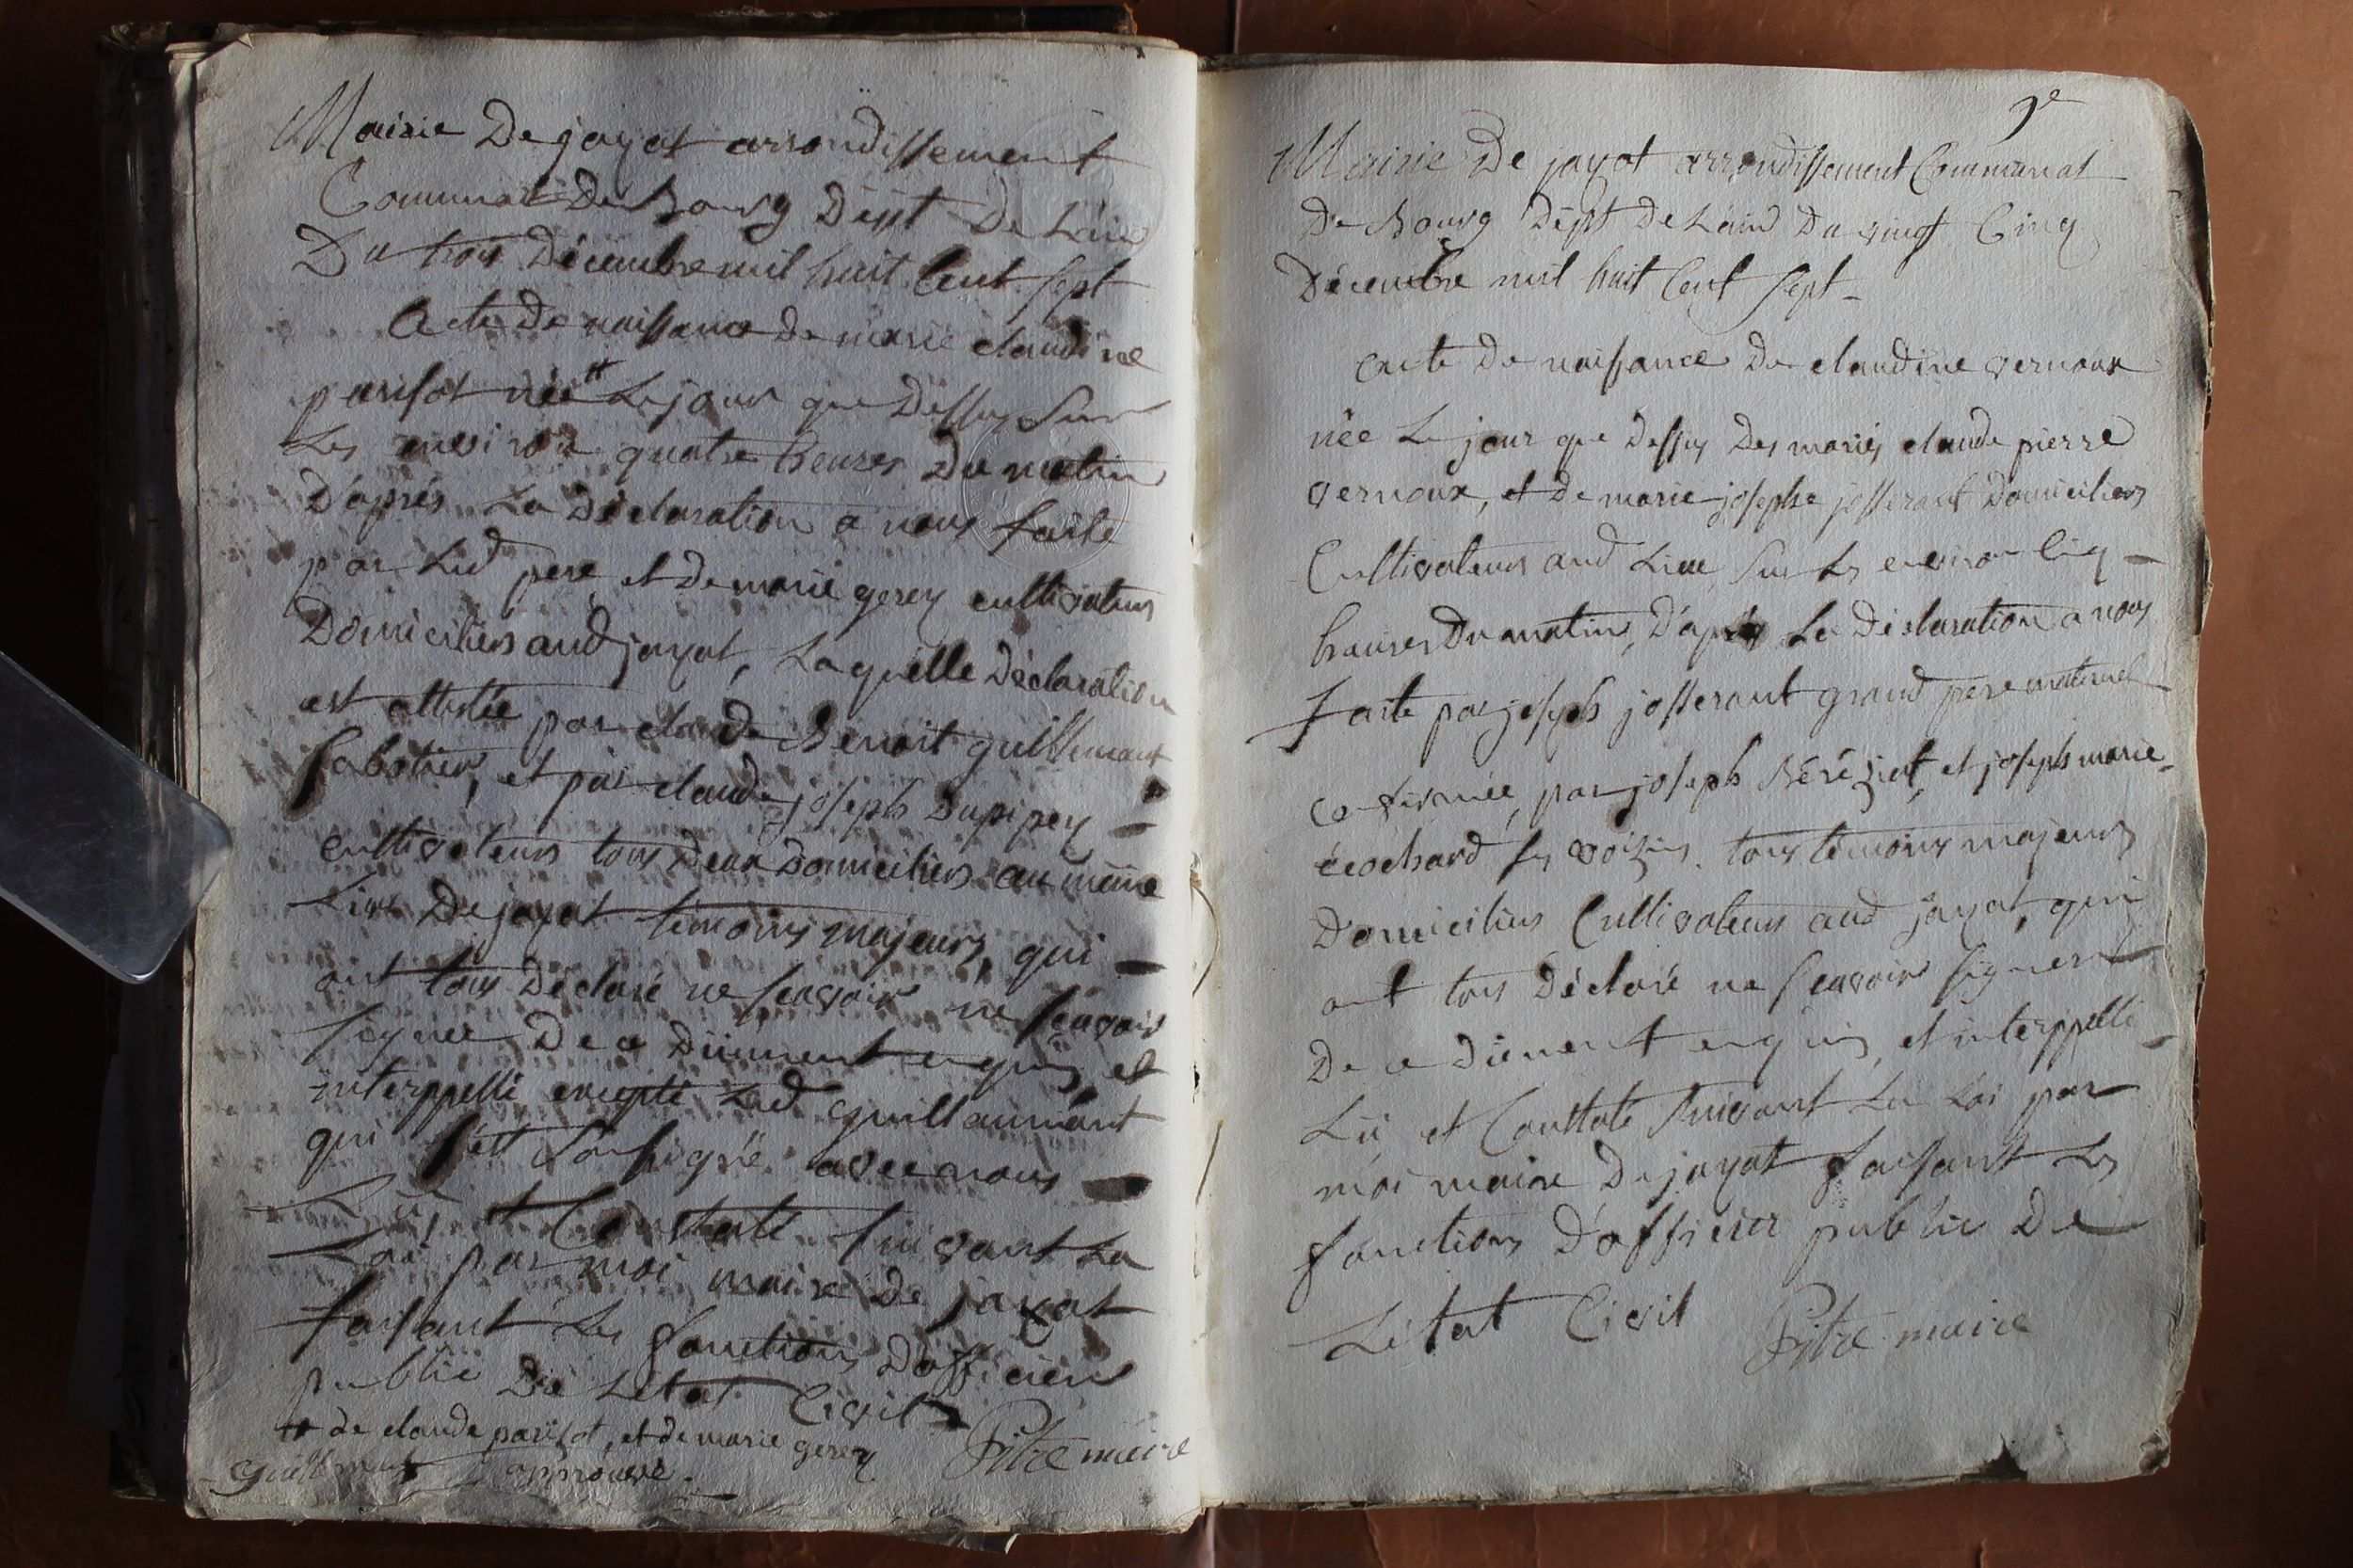 Mairie De jayat arrondissement
Communal De Bourg Dépt De L'ain
Du trois Décembre mil huit Cent sept
Acte De naissance De marie claudine
parisot née # Le jour que Dessus Sur
Les environ quatre heures Du matin
D'après La Déclaration a nous faite
par Led pere et De marie gerey cultivateurs
Domiciliés aud jayat, Laquelle Déclaration
est attestée par claude Benoit guillemant
sabotier, et par claude joseph Dupipey
cultivateurs tous Deux Domiciliés au même
Lieu De jayat témoins majeurs, qui
ont tous Déclaré ne scavoir ne scavoir
signer De ce Düment enquis, et
interppellé excepté Led guillaumant
qui s'ést Soussigné avec nous
Lü, et Constaté suivant La
Loi par moi maire De jayat
faisant Les fonctions D'officier
public De Létat Civil
# de claude parisot, et de marie gerey
approuvé. Pitre maire
9e
Mairie De jayat arrondissement Communal
De Bourg Dépt De L'ain Du vingt Cinq
Décembre mil huit Cent sept
acte De naissance De claudine vernoux
née Le jour que Dessus Des mariés claude pierre
vernoux, et De marie josephe josserant Domiciliés
Cultivateurs aud Lieu Sur Les environ Cinq
heures Du matin, D'après La Déclaration a nous
faite par joseph josserant grand pere maternel
confirmée, par joseph Béréziat, et joseph marie
écochard ses voizins. tous témoins majeurs
Domiciliés Cultivateurs aud jayat, qui
ont tous Déclaré ne scavoir signer
De ce Düment enquis, et interppellé
Lü et Constaté Suivant La Loi par
moi maire De jayat faisant Les
fonctions D'officier public De
Létat Civil Pitre maire